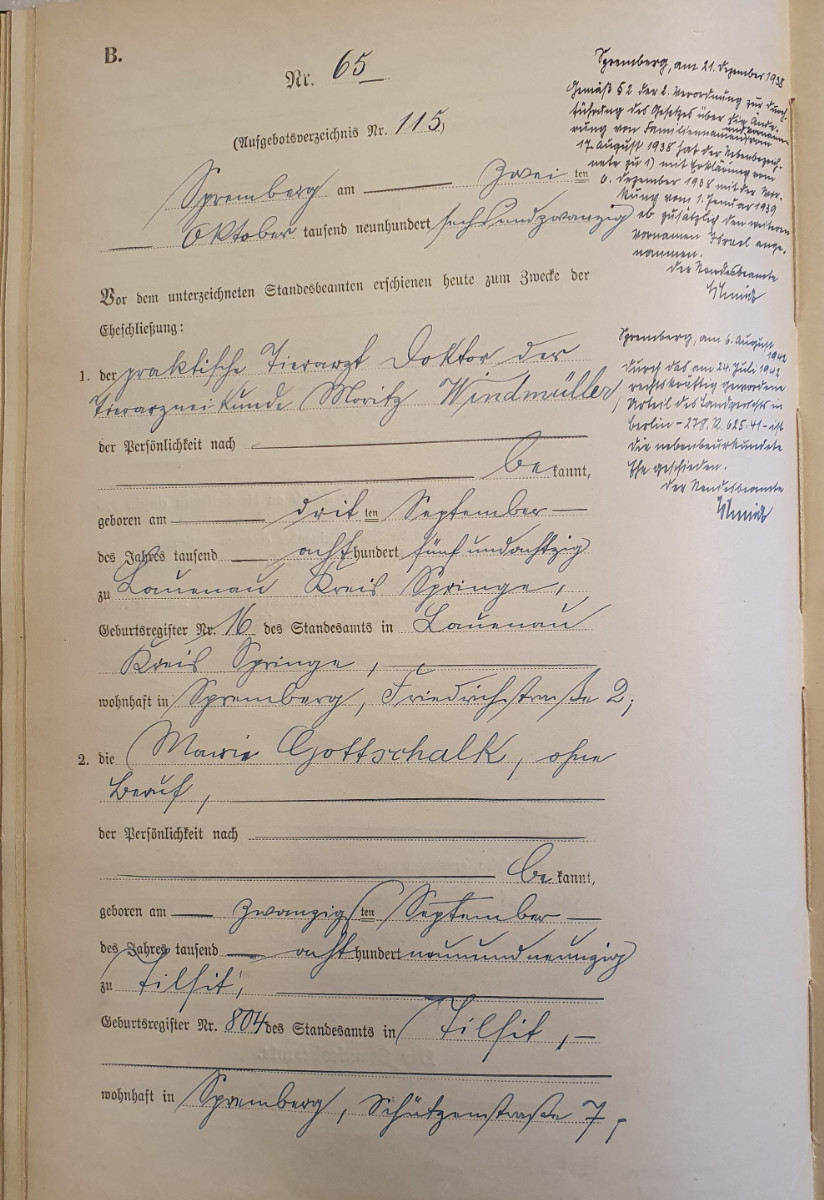 B.
Nr. 65
(Aufgebotsverzeichnis Nr. 115)
Spremberg am zwei ten
Oktober tausend neunhundert sechsundzwanzig
Vor dem unterzeichneten Standesbeamten erschienen heute zum Zwecke der
Eheschließung:
1. der praktische Tierarzt Doktor der
Tierarzneikunde Moritz Windmüller,
der Persönlichkeit nach
be kannt,
geboren am drit ten September
des Jahres tausend acht hundert fünfundachtzig
zu Lauenau Kreis Springe,
Geburtsregister Nr. 16 des Standesamts in Lauenau
Kreis Springe,
wohnhaft in Spremberg, Friedrichstraße 2;
2. die Marie Gottschalk, ohne
Beruf,
der Persönlichkeit nach
be kannt,
geboren am zwanzigs ten September
des Jahres tausend acht hundert neunundneunzig
zu Tilsit,
Geburtsregister Nr. 804 des Standesamts in Tilsit,
wohnhaft in Spremberg, Schützenstraße 7,
Spremberg, am 21. Dezember 1938
Gemäß § 2 der 2. Verordnung zur Durch-
führung des Gesetzes über die Ände-
rung von Familiennamen und Vornamen vom
17. August 1938 hat der Nebenbezeich-
nete zu 1) mit Erklärung vom
6. Dezember 1938 mit der Wir-
kung vom 1. Januar 1939
ab zusätzlich den weiteren
Vornamen Israel ange-
nommen.
Der Standesbeamte
Spremberg, am 6. August
1942
Durch das am 24. Juli 1942
rechtskräftig gewordene
Urteil des Landgerichts in
Berlin – 278. R. 625.41 – ist
die nebenbeurkundete
Ehe geschieden.
Der Standesbeamte